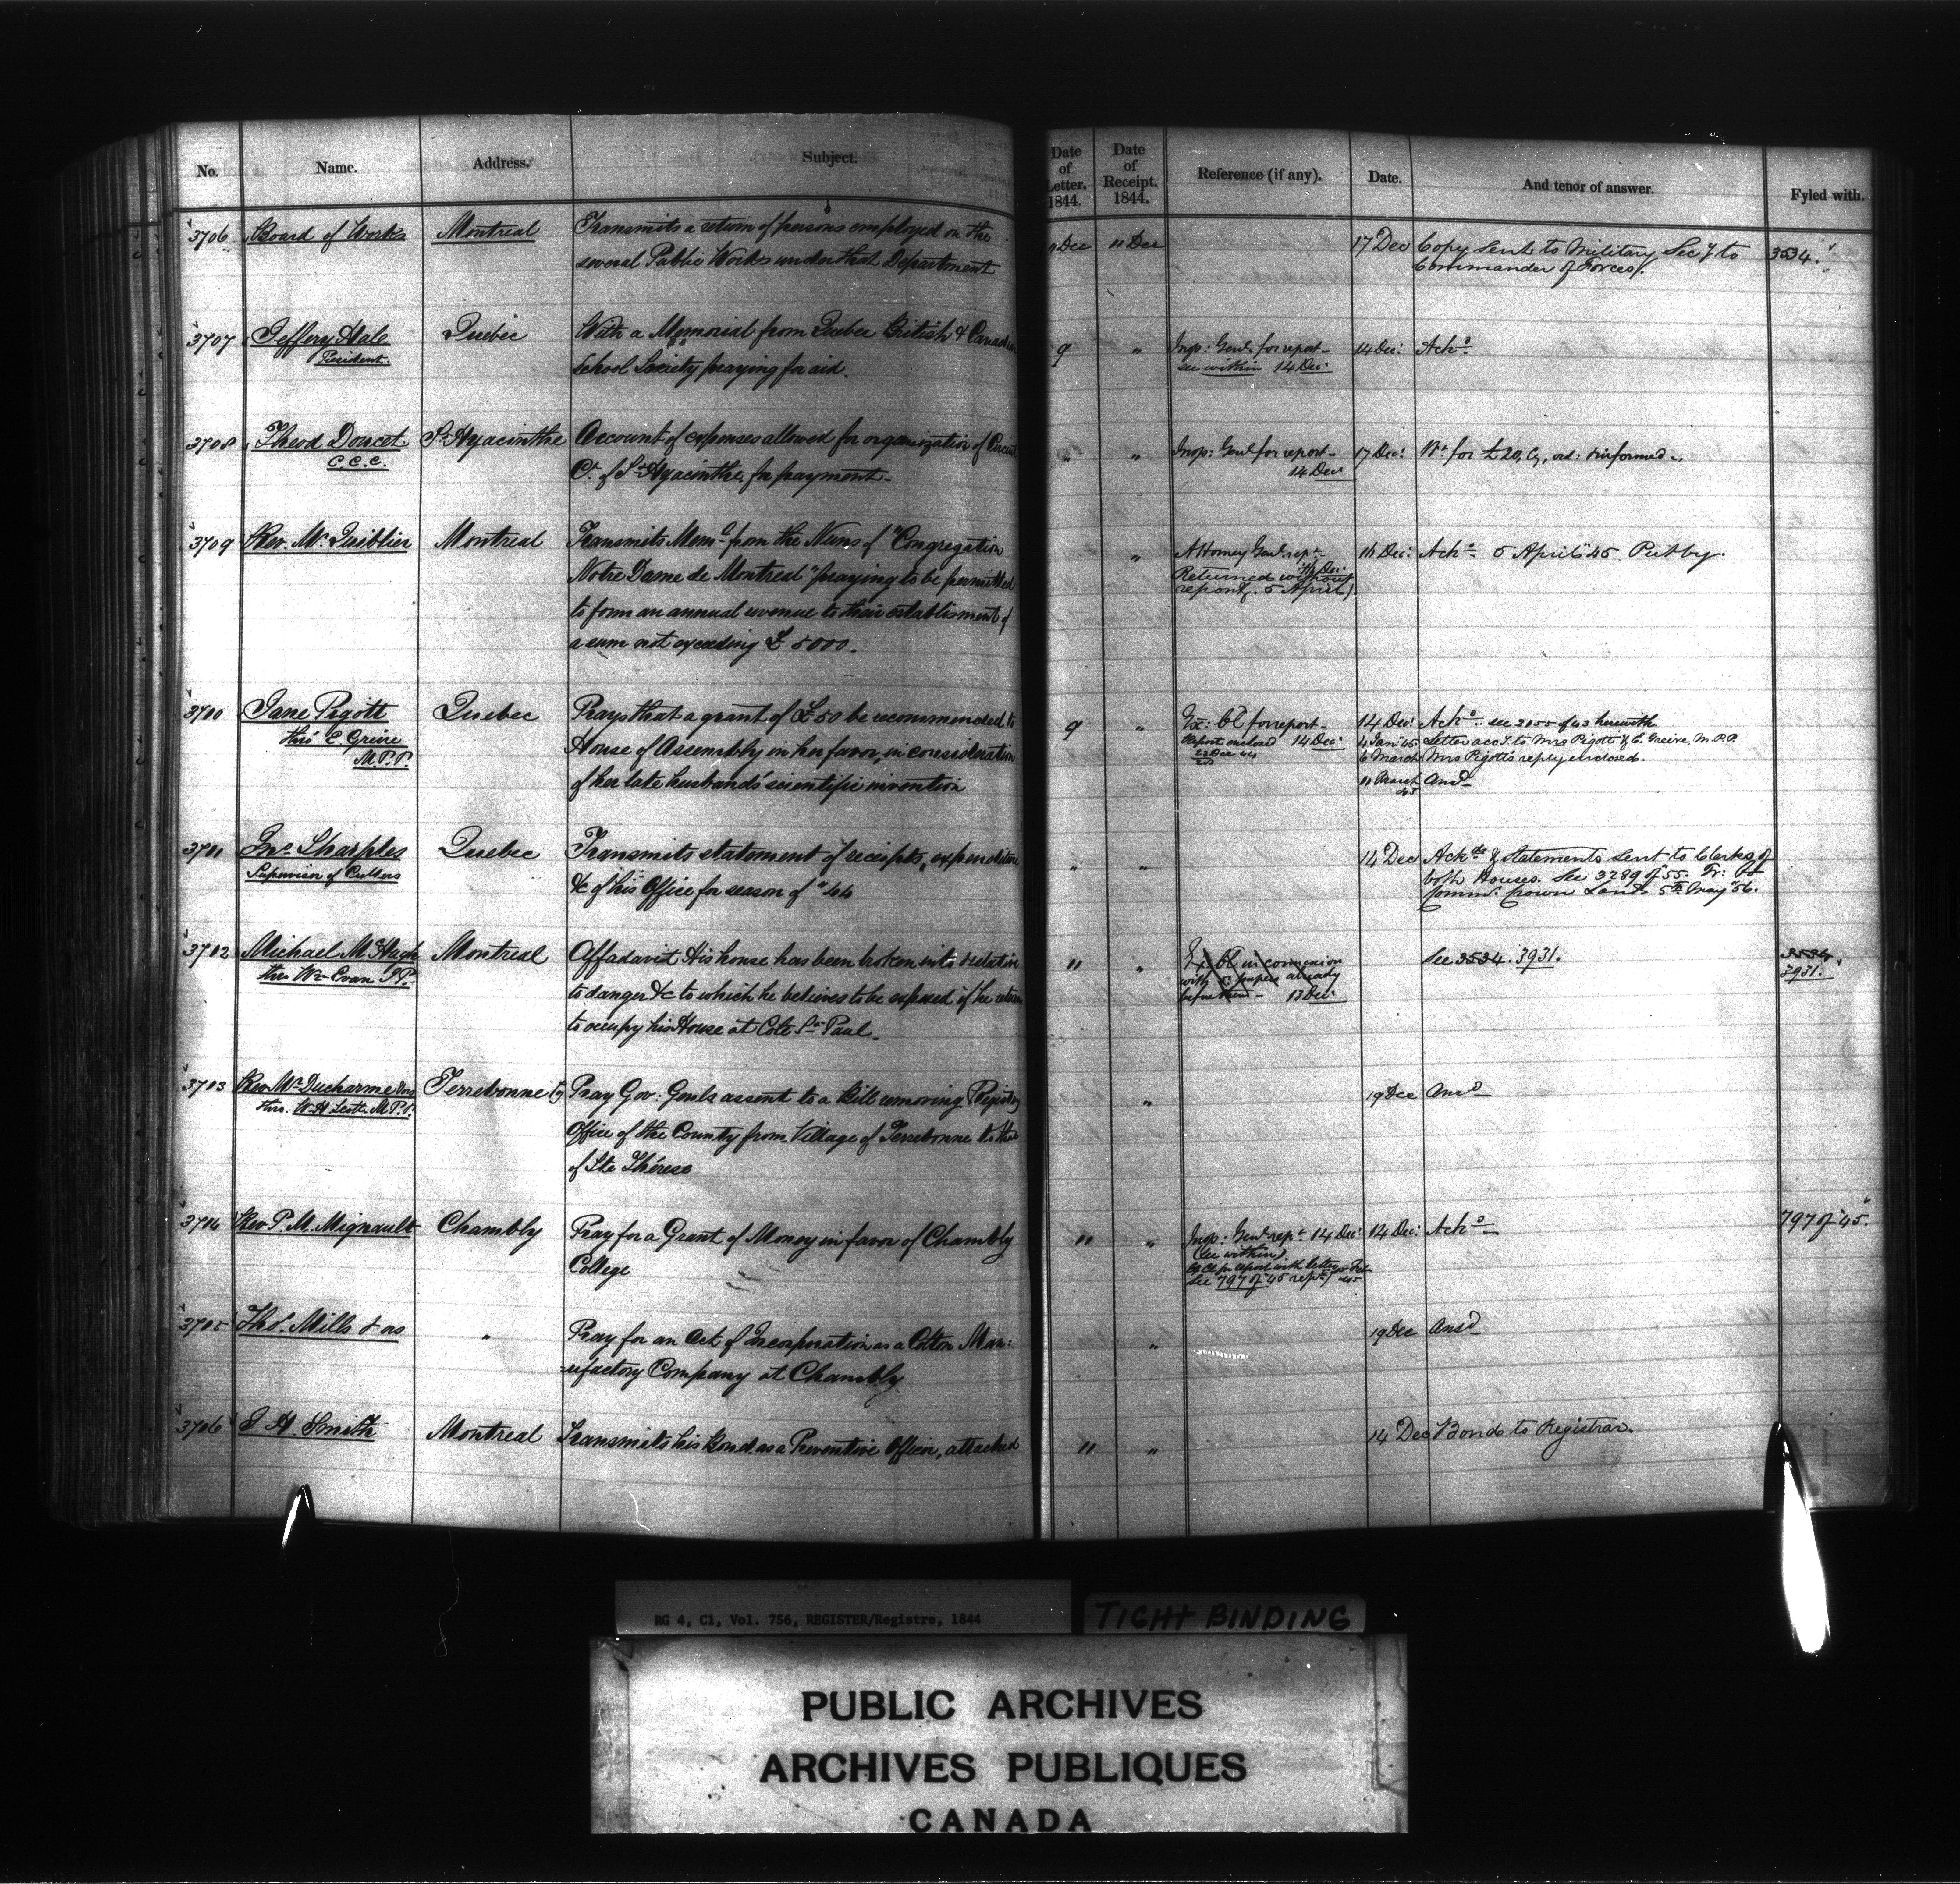 No. Name. Address. Subject. Date of Letter. 1844. Date of Receipt. 1844. Reference (if any). Date. And tenor of answer. Fyled with.
3706 Board of Works Montreal Transmits a return of persons employed on the 11 Dec 11 Dec 17 Dec Copy sent to Military Secy to 3534.
several Public Works under that Department Commander of Forces.
3707 Jeffery Hale Quebec With a Memorial from Quebec British & Canadian 9 " Insp: Genl. for report- 14 Dec: Ackd.
President. School Society praying for aid. see within 14 Dec:
3708 Theod Doucet St. Hyacinthe Account of expenses allowed for organization of Circuit " " Insp: Genl for report- 17 Dec: Wt. for £20, Cy, &informed.
C.C.C. Ct. of St. Hyacinthe, for payment. 14 Dec
3709 Rev. Mr. Quiblier Montreal Transmits Meml. from the Nuns of "Congregation " Attorney Genl. rept. 14 Dec: Ackd. 5 April "45 Put by.
Notre Dame de Montreal" praying to be permitted Returned without
to form an annual revenue to their establisment of report. 5 April
a sum not exceeding £5000.
3710 Jane Pigott Quebec Prays that a grant of £50 be recommended to 9 " Ex: Cl for report- 14 Dec: Ackd. see 2055 of 43 herewith
thro' E Greive House of Assembly in her favor, in consideration Report enclosed 14 Dec: 4 Jany 45. Letter accy. to Mrs Pigott & E. Greive, M.P.P.
M.P.P. of her late husband's scientific invention 6 March Mrs Pigotts reply enclosed.
11 March 45 Ansd
3711 Jno. Sharples Quebec Transmits statement of receipts, expenditure " " 14 Dec Ackd. & Statements sent to Clerks of
Supervisor of Cullers &c of his Office for season of "44 both Houses. See 3289 of 55. Tr: to
Commr. Crown Lands 5th May "56.
3712 Michael McHugh Montreal Affadavit His house has been broken into & relative 11 " Ex: Cl in connexion See 3534. 3931. 3534
thro Wm Evan JP. to danger &c to which he believes to be exposed if he return with papers already 3931.
to occupy his House at Cote St. Paul. before them - 13 Dec:
3713 Rev Mr. Ducharme Terrebonne Cy Pray Gov: Genls assent to a Bill removing Registry " 19 Dec Ansd
thro. W. H Scott M.P.P. Office of the County from Village of Terrebonne to that
of Ste Thérese
3714 Rev P. M. Mignault Chambly Pray for a Grant of Money in favor of Chambly 11 " Insp: Genl. rept. 14 Dec: 14 Dec: Ackd. 797 of "45.
College (see within)
Ex Cl for report with letter
See 797 of 45
3715 Thos. Mills & os " Pray for an Act of Incorporation as a Cotton Man: " 19 Dec Ansd
=ufactory Company at Chambly
3716 S H. Smith Montreal Transmits his Bond as a Preventive Officer, attached 11 " 14 Dec Bonds to Registrar.
RG 4, C1, Vol. 756, REGISTER/Registre, 1844
TIGHT BINDING
PUBLIC ARCHIVES
ARCHIVES PUBLIQUES
CANADA